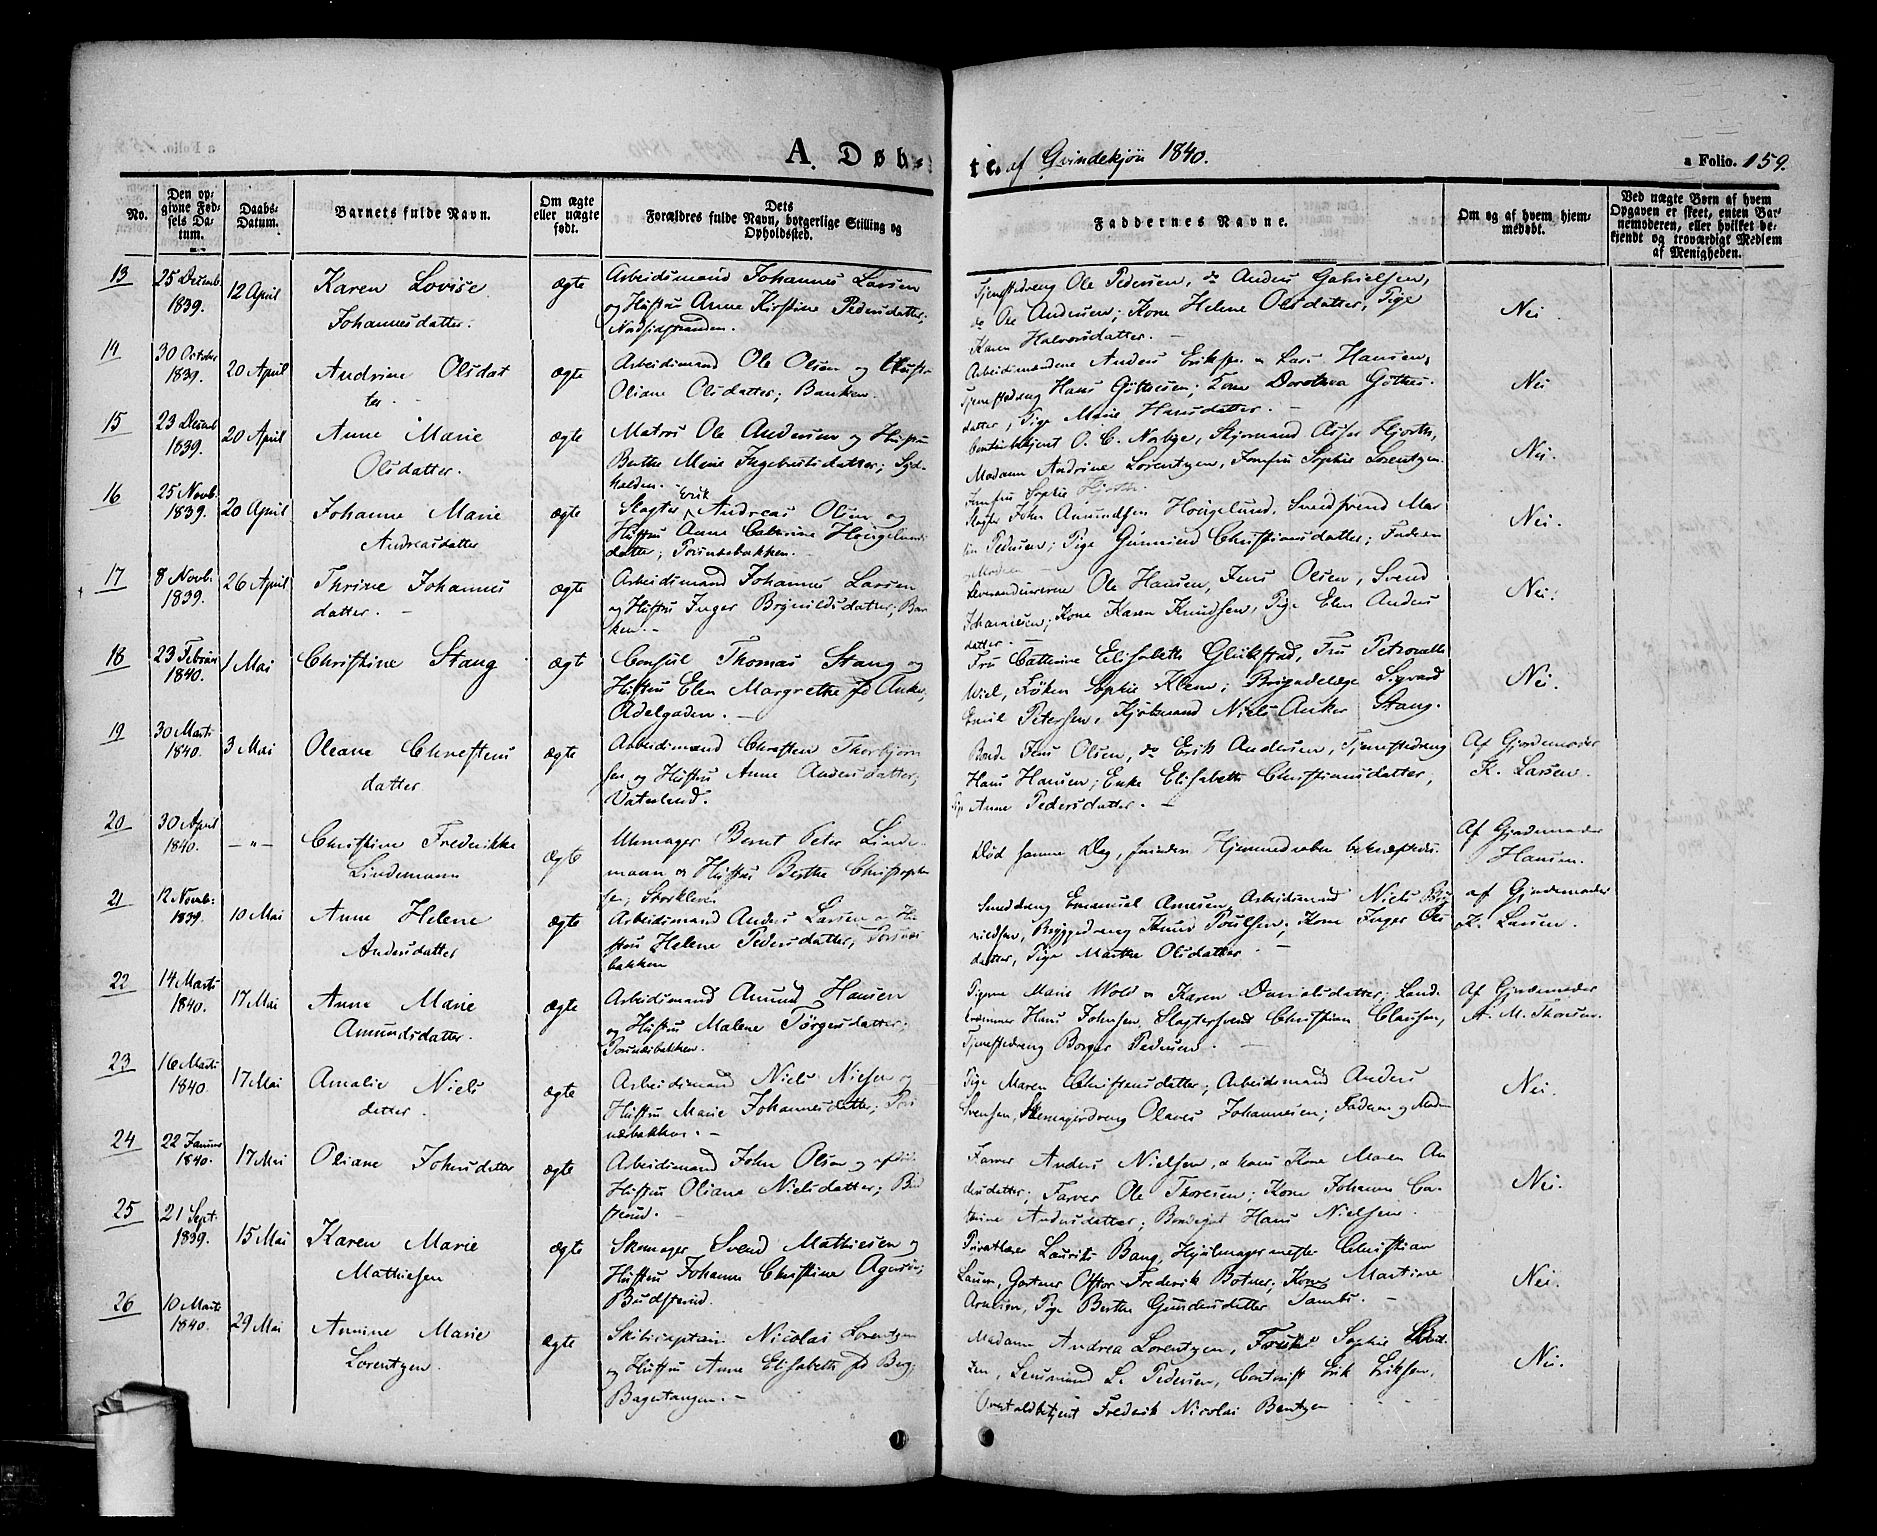 A. Døb-
te. af Qvindekjøn 1840.
a Folio. 159.
No.
Den op-
givne Fød-
sels Da-
tum.
Daabs-
Datum.
Barnets fulde Navn.
Om ægte
eller uægte
født.
Dets
Forældres fulde Navn, borgerlige Stilling og
Opholdssted.
Faddernes Navne.
Om og af hvem hjem-
medøbt.
Ved uægte Børn af hvem
Opgaven er skeet, enten Bar-
nemoderen, eller hvilket be-
kjendt og troværdigt Medlem
af Menigheden.
13
25 Decemb.
1839.
12 April
Karen Lovise
Johannesdatter.
ægte
Arbeidsmand Johannes Larsen
og Hustru Anne Kirstine Pedersdatter;
Tjenestedreng Ole Pedersen, do Anders Gabrielsen,
do Ole Andersen; Kone Helene Olsdatter, Pige
Karen Halvorsdatter.
Nei.
14
30 October
1839.
20 April
Andrine Olsdat
ter.
ægte
Arbeidsmand Ole Olsen og Hustru
Oliane Olsdatter; Banken.
Arbeidsmændene Anders Eriksen og Lars Hansen,
Tjenestedreng Hans Gøttersen; Kone Dorothea Gøtters-
datter, Pige Marie Hansdatter.
Nei
15
23 Decemb
1839.
20 April
Anne Marie
Olsdatter.
ægte
Matros Ole Andersen og Hustru
Berthe Marie Ingebretsdatter; Syd-
halden.
O. C. Norbye, Skibsmand Hjorth,
Madam Andrine Lorentzen, Jomfru Sophie Lorentzen
Jomfru Sophie Hjorth.
Nei.
16
25 Novb.
1839.
20 April
Johanne Marie
Andreasdatter
ægte
Slagter Erik Andreas Olsen og
Hustru Anne Cathrine Hougelunds-
datter; Torsnesbakken.
Slagter John Amundsen Hougelund, Svend Mar
tin Pedersen; Pige Gunnild Christiansdatter; Faderen
og Moderen
Nei.
17
8 Novb.
1839.
26 April
Thrine Johannes
datter.
ægte
Arbeidsmand Johannes Larsen
og Hustru Inger Brynildsdatter; Ban
ken.
Ole Hansen, Jens Olsen, Svend
Johannesen; Kone Karen Knudsen, Pige Elen Anders
datter.
Nei.
18
23 Februar
1840.
1 Mai
Christine Stang
ægt
Consul Thomas Stang og
Hustru Elen Margrethe fd Anker,
Adelgaden.
Fru Cathrine Elisabeth Glükstad, Fru Petronelle
Wiel, Frøken Sophie Klem; Brigadelæge Sigvard
Emil Petersen, Kjøbmand Niels Anker Stang.
Nei.
19
30 Marts
1840.
3 Mai
Oleane Christens
datter
ægte
Arbeidsmand Christen Thorbjørn
sen og Hustru Anne Andersdatter;
Vaterland.
Bonde Jens Olsen, do Erik Andersen, Tjenestedreng
Hans Hansen; Enke Elisabeth Christiansdatter,
Pige Anne Pedersdatter.
Af Gjordemoder
K. Larsen.
20
30 April
1840.
— " —
Christine Frederikke
Lindemann
ægte
Uhrmager Bernt Peter Linde-
mann og Hustru Berthe Christophe
sen; Storkleven
Død samme Dag, førinden Hjemmedaaben bekræftedes.
Af Gjordemoder
Hansen.
21
12 Novb.
1839.
10 Mai
Anne Helene
Andersdatter
ægte
Arbeidsmand Anders Larsen og Hu-
stru Helene Pedersdatter, Torsnes
bakken
Emanuel Arnesen, Arbeidsmand Niels Bry
nildsen, Bryggedreng Knud Poulsen; Kone Inger Ols
datter, Pige Marthe Olsdatter.
af Gjordemoder
K. Larsen.
22
14 Marts
1840.
17 Mai
Anne Marie
Amundsdatter.
ægte
Arbeidsmand Amund Hansen
og Hustru Malene Tørgersdatter;
Torsnesbakken.
Pigerne Marie Wold og Karen Danielsdatter; Land-
kræmmer Hans Johnsen, Slagtersvend Christian Clausen,
Tjenestedreng Borger Pedersen.
Af Gjordemoder
A. M. Thoresen.
23
16 Marts
1840
17 Mai
Amalie Niels
datter.
ægte
Arbeidsmand Niels Nielsen og
Hustru Marie Johannesdatter; Tors
nesbakken.
Pige Maren Christensdatter; Arbeidsmand Anders
Svensen, Skomagerdreng Olaves Johannesen; Faderen og Moderen
Nei.
24
22 Januar
1840.
17 Mai
Oliane Johnsdatter
ægte
Arbeidsmand John Olsen og afdøde
Hustru Oliana Nielsdatter; Bud
sterud.
Farver Anders Nielsen, og hans Kone Maren An
dersdatter; Farver Ole Thoresen; Kone Johanne Ca-
thrine Andersdatter; Bondegut Hans Nielsen.
Nei.
25
21 Sept.
1839.
15 Mai
Karen Marie
Mathiesen
ægte
Skomager Svend Mathiesen og
Hustru Johanne Christine Agerøe;
Budsterud.
Privatlærer Laurits Bang, Hjulmagermester Christian
Larsen, Gartner Offer Frederik Botner, Kone Martine
Arnesen, Pige Berthe Gundersdatter Tambs.
Nei.
26
10 Marts
1840.
29 Mai
Annine Marie
Lorentzen.
ægte
Skibscaptain Nicolai Lorentzen
og Hustru Anne Elisabeth fd Berg;
Bagestangen.
Madame Andrea Lorentzen, Sophie
Lensmand L. Pedersen, Contorist Erik Eriksen,
Overtoldbetjent Frederik Nicolai Bentzen
Nei.